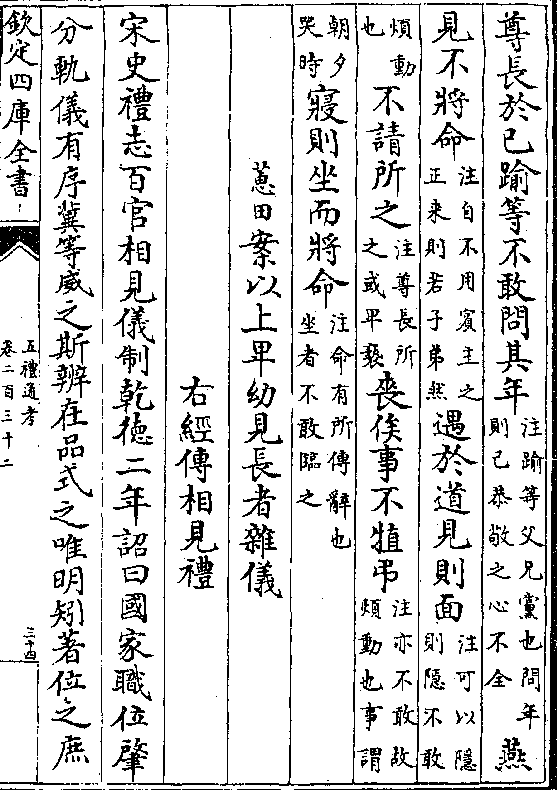 尊長於已踰等不敢問其年注踰等父兄黨也問年則已恭敬之心不全燕
見不將命注自不用賓主之正来則若子弟然遇於道見則面注可以隱則隱不敢
煩動也不請所之注尊長所之或卑褻喪俟事不犆弔注亦不敢故煩動也事謂
朝夕哭時寢則坐而將命注命有所傳辭也坐者不敢臨之
蕙田案以上卑幼見長者雜儀
右經傳相見禮
宋史禮志百官相見儀制乾徳二年詔曰國家職位肇
分軌儀有序冀等威之斯辨在品式之唯明矧著位之庶
欽定四庫全書
五禮通考
卷二百三十二
三十四